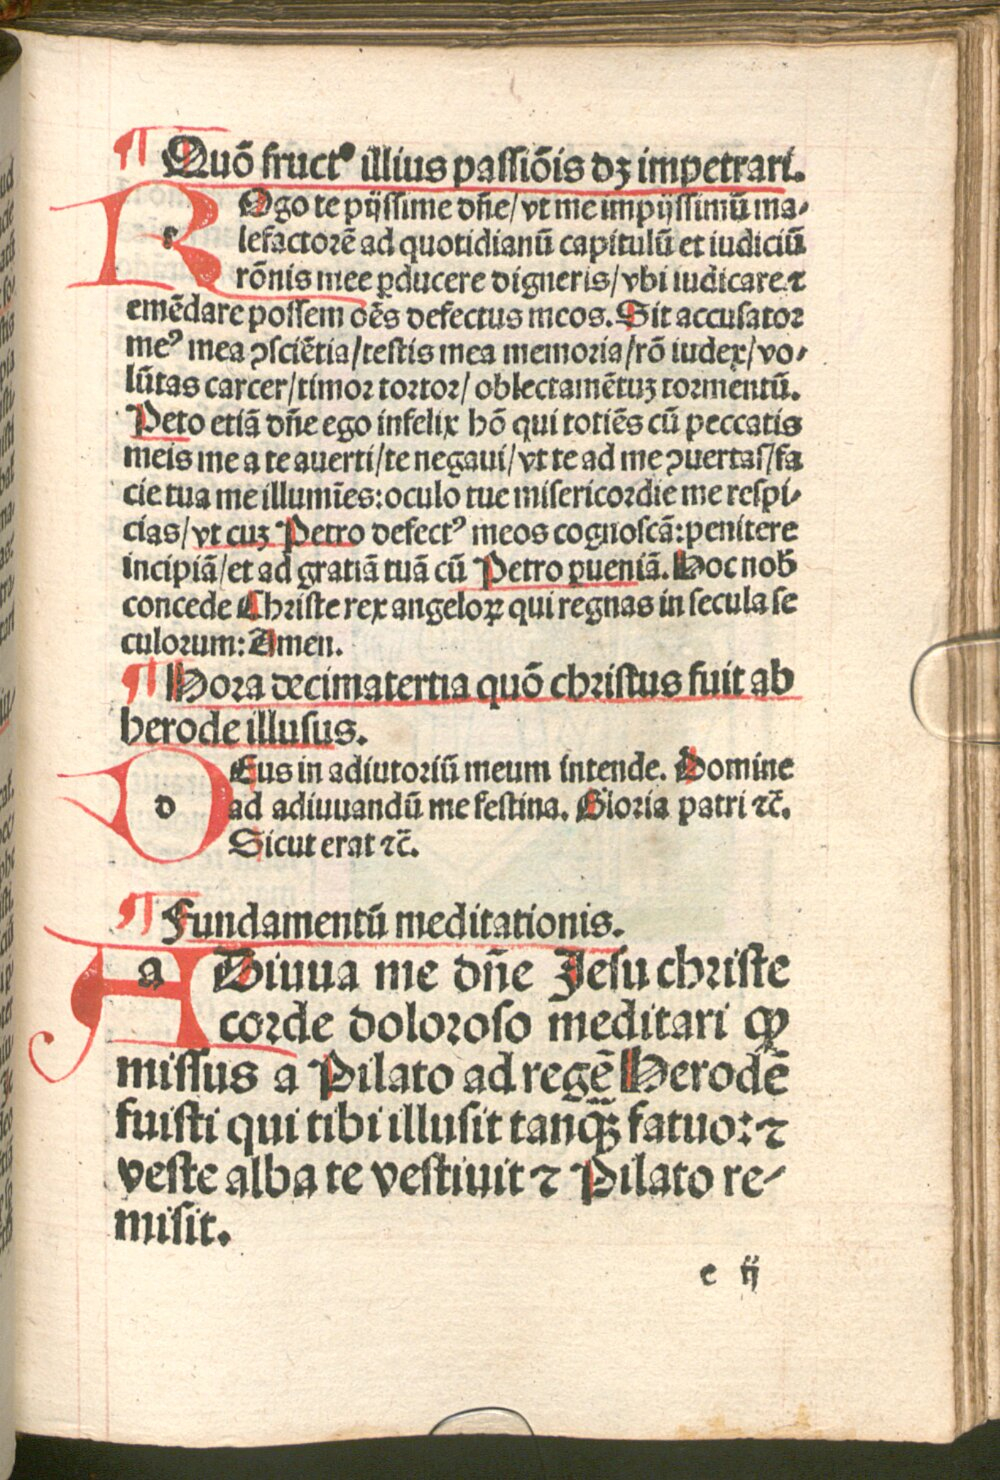 ¶ Quõ fructꝰ illius passiõis dꝫ impetrari.
ROgo te pijssime dñe/ vt me impijssimũ ma⸗
lefactorẽ ad quotidianũ capitulũ et iudiciũ
rõnis mee ꝑducere digneris/ vbi iudicare ⁊
emẽdare possem oẽs defectus meos. Sit accusator
meꝰ mea ꝯsciẽtia/ testis mea memoria/ rõ iudex/ vo⸗
lũtas carcer/ timor tortor/ oblectamẽtuꝫ tormentũ.
Peto etiã dñe ego infelix hõ qui totiẽs cũ peccatis
meis me a te auerti/ te negaui/ vt te ad me ꝯuertas/ fa
cie tua me illumĩes: oculo tue misericordie me respi⸗
cias/ vt cuꝫ Petro defectꝰ meos cognoscã: penitere
incipiã/ et ad gratiã tuã cũ Petro ꝑueniã. Hoc nob̃
concede Christe rex angeloꝝ qui regnas in secula se
culorum: Amen.
¶ Hora decimatertia quõ christus fuit ab
herode illusus.
DEus in adiutoriũ meum intende. Domine
ad adiuuandũ me festina. Gloria patri ⁊c̃.
Sicut erat ⁊c̃.
¶ Fundamentũ meditationis.
ADiuua me dñe Jesu christe
corde doloroso meditari ꝙ
missus a Pilato ad regẽ Herodẽ
fuisti qui tibi illusit tanꝙ̃ fatuo: ⁊
veste alba te vestiuit ⁊ Pilato re⸗
misit.
e ij